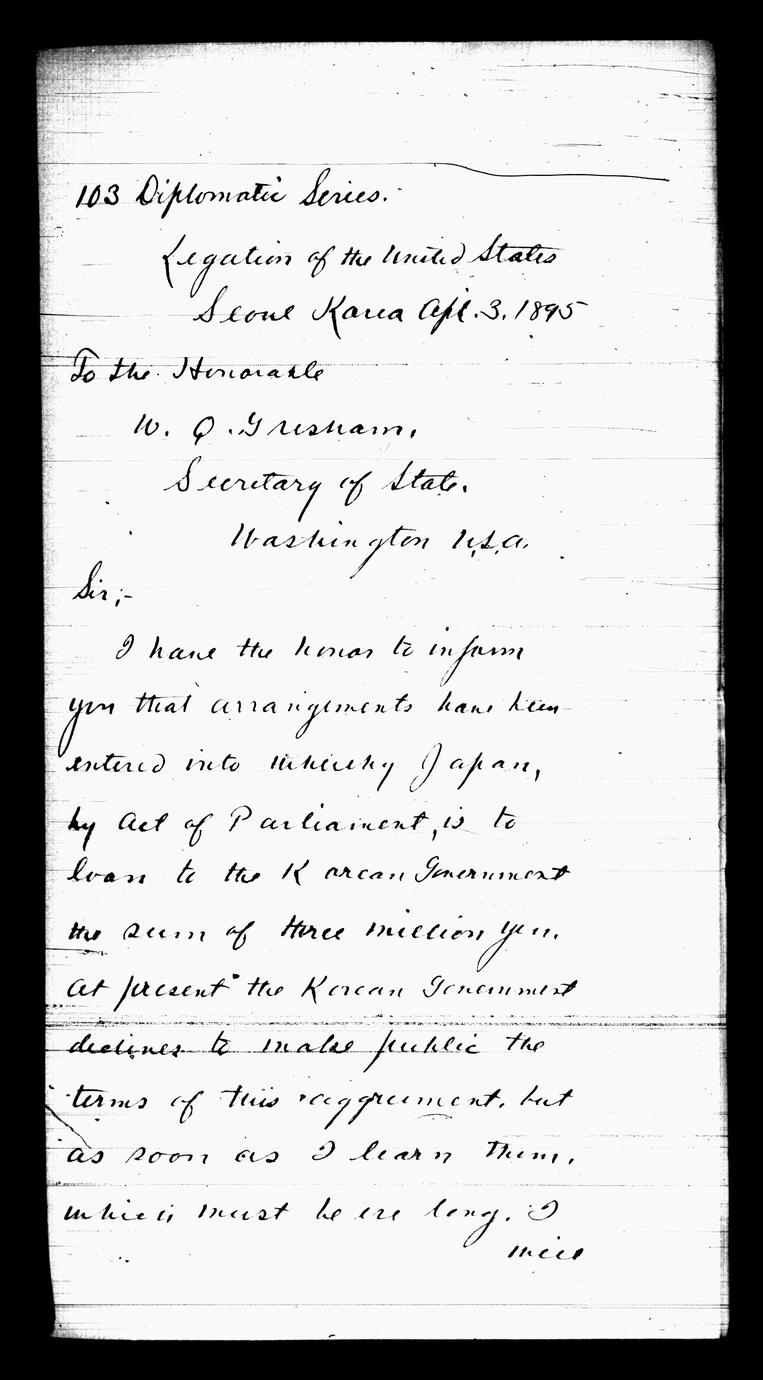 103 Diplomatic Series.
Legation of the United States
Seoul Korea Apl. 3. 1895
To the Honorable
W. Q. Gresham,
Secretary of State.
Washington U.S.A.
Sir;-
I have the honor to inform
you that arrangements have been
entered into whereby Japan,
by act of Parliament, is to
loan to the Korean Government
the sum of three million yen.
At present the Korean Government
declines to make public the
terms of this aggreement, but
as soon as I learn them,
which must be ere long, I
will